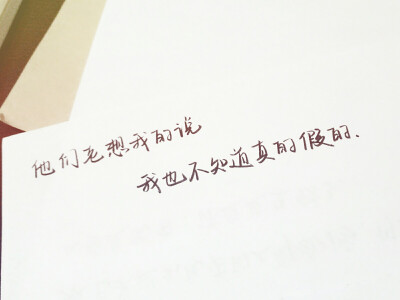 他们老想我的说
我也不知道真的假的.